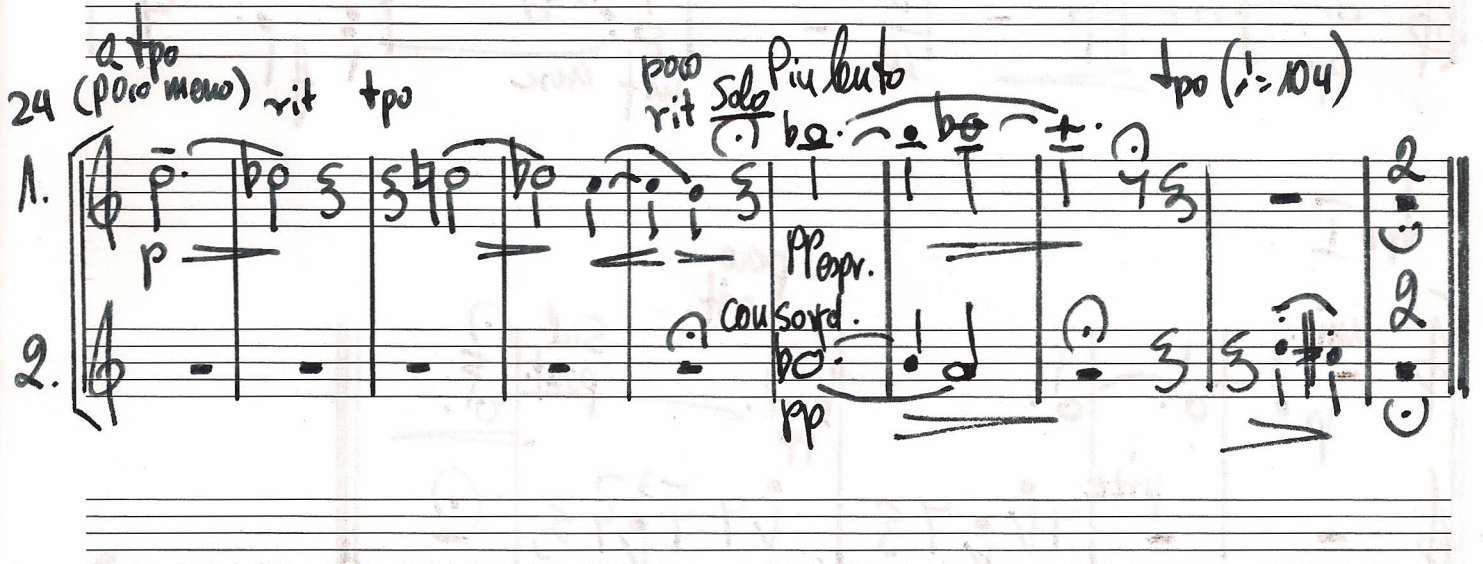 a tpo
24 (poco meno) rit tpo poco rit Solo Piu lento tpo (♩= 104)
1.
2
p
pp espr.
con sord.
2.
2
pp